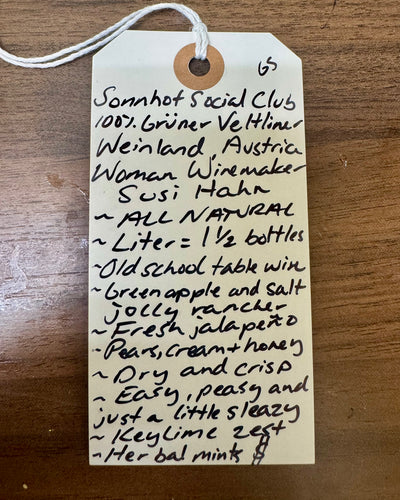 GS
Sonnhof Social Club
100% Grüner Veltliner
Weinland, Austria
Woman Winemaker
Susi Hahn
~ ALL NATURAL
~ Liter = 1 1/2 bottles
~Old school table wine
~Green apple and salt
jolly rancher
~ Fresh jalapeño
~Pears, cream + honey
~ Dry and crisp
~ Easy, peasy and
just a little sleazy
~ Key lime zest
~ Herbal mints $